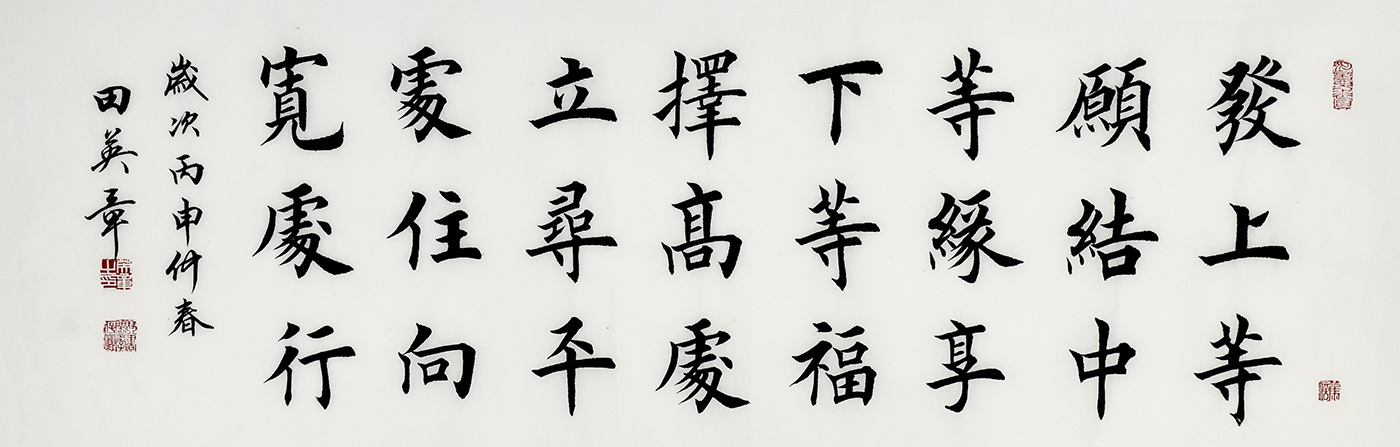 發上等
願結中
等緣享
下等福
擇高處
立尋平
處住向
寬處行
歲次丙申仲春
田英章